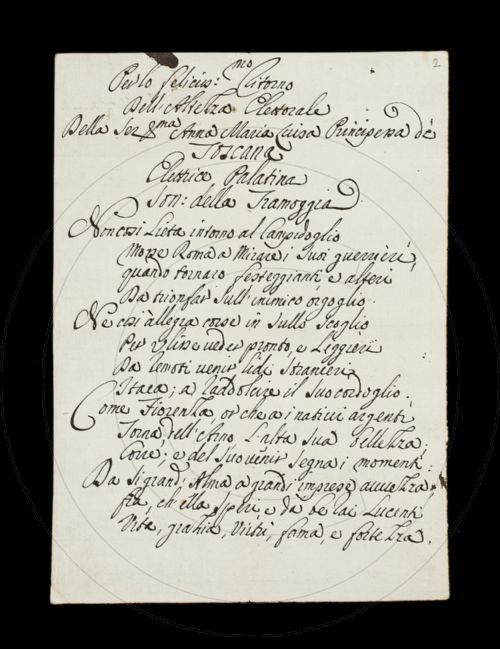 2
Per lo feliciss:mo Ritorno
Dell'Altezza Elettorale
Della Ser:ma Anna Maria Luisa Principessa de
TOSCANA
Elettrice Palatina
Son: della Tramoggia
Non così Lieta intorno al Campidoglio
Mosse Roma a Mirare i suoi guerrieri,
quando tornaro festeggianti, e alteri
Da trionfar sull'inimico orgoglio.
Ne così allegra corse in sullo scoglio
Per Ulisse veder pronto, e Leggieri
Da remoti venir lidi stranieri
Itaca; a raddolcire il suo cordoglio.
Come Fiorenza, or che a i nativi argenti
Torna dell'Arno l'alta sua bellezza,
Corre; e del suo venir segna i momenti:
Da sì grand'Alma a grandi imprese avvezza,
fia, ch'ella speri, e da be rai Lucenti
Vita, grazia, Virtù, fama, e fortezza.